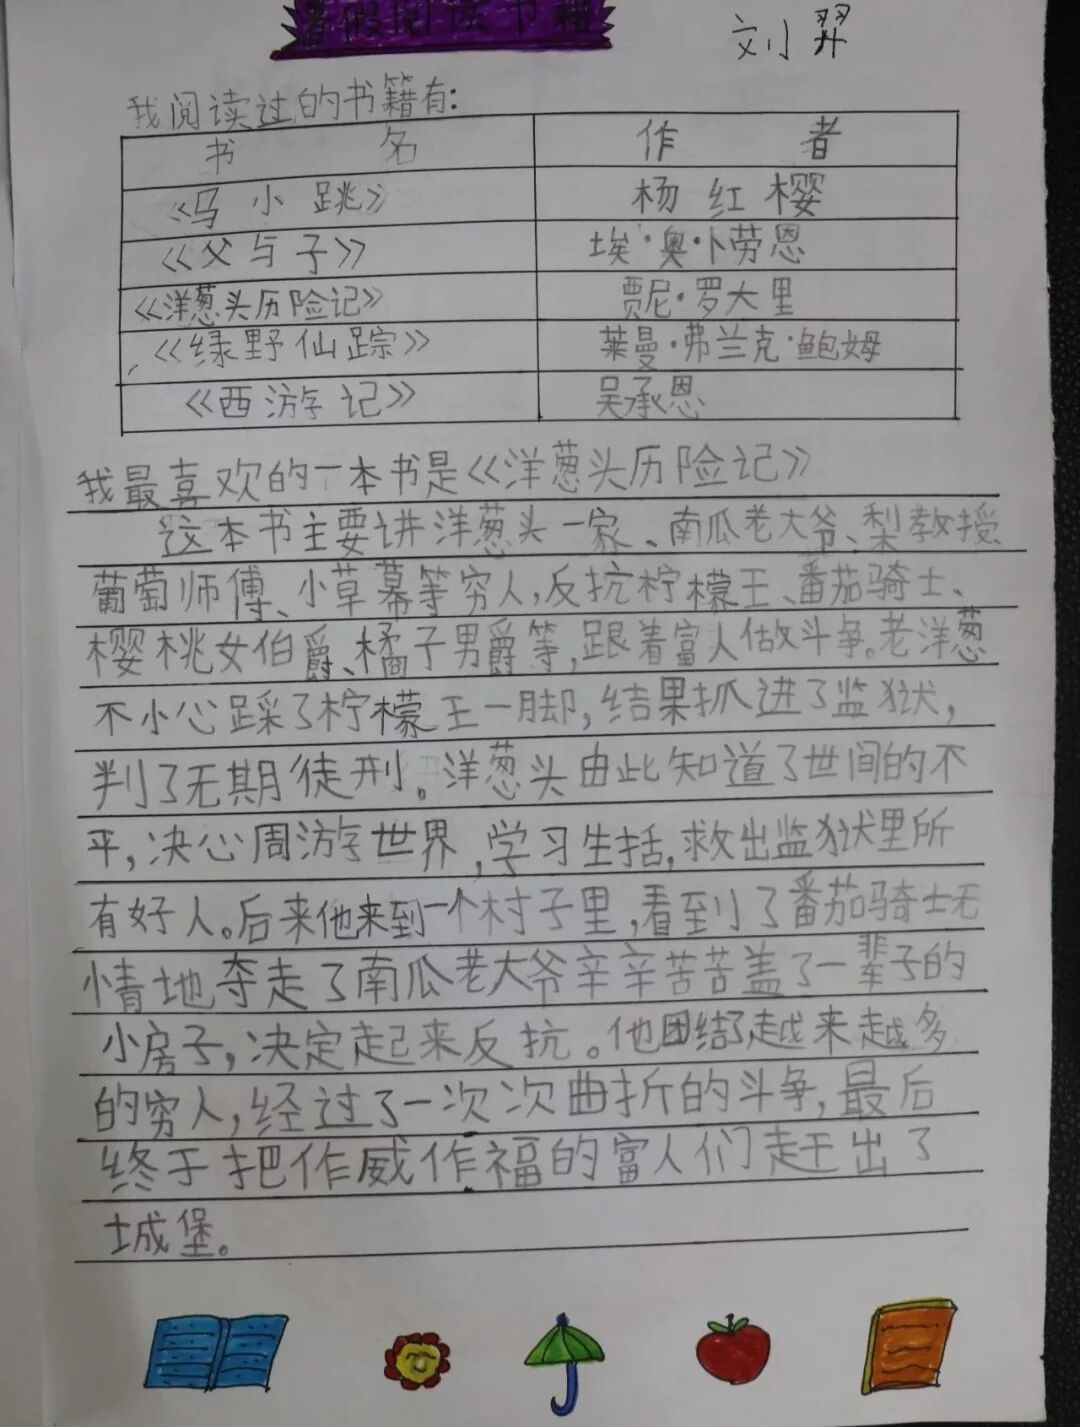 暑假阅读书橙
刘羿
我阅读过的书籍有:
书 名 作 者
《马小跳》 杨红樱
《父与子》 埃·奥·卜劳恩
《洋葱头历险记》 贾尼·罗大里
《绿野仙踪》 莱曼·弗兰克·鲍姆
《西游记》 吴承恩
我最喜欢的一本书是《洋葱头历险记》
这本书主要讲洋葱头一家、南瓜老大爷、梨教授
葡萄师傅、小草幕等穷人,反抗柠檬王、番茄骑士、
樱桃女伯爵、橘子男爵等,跟着富人做斗争。老洋葱
不小心踩了柠檬王一脚,结果抓进了监狱,
判了无期徒刑。洋葱头由此知道了世间的不
平,决心周游世界,学习生括,救出监狱里所
有好人。后来他来到一个村子里,看到了番茄骑士无
情地夺走了南瓜老大爷辛辛苦苦盖了一辈子的
小房子,决定起来反抗。他团绑了越来越多
的穷人,经过了一次次曲折的斗争,最后
终于把作威作福的富人们赶出了
城堡。